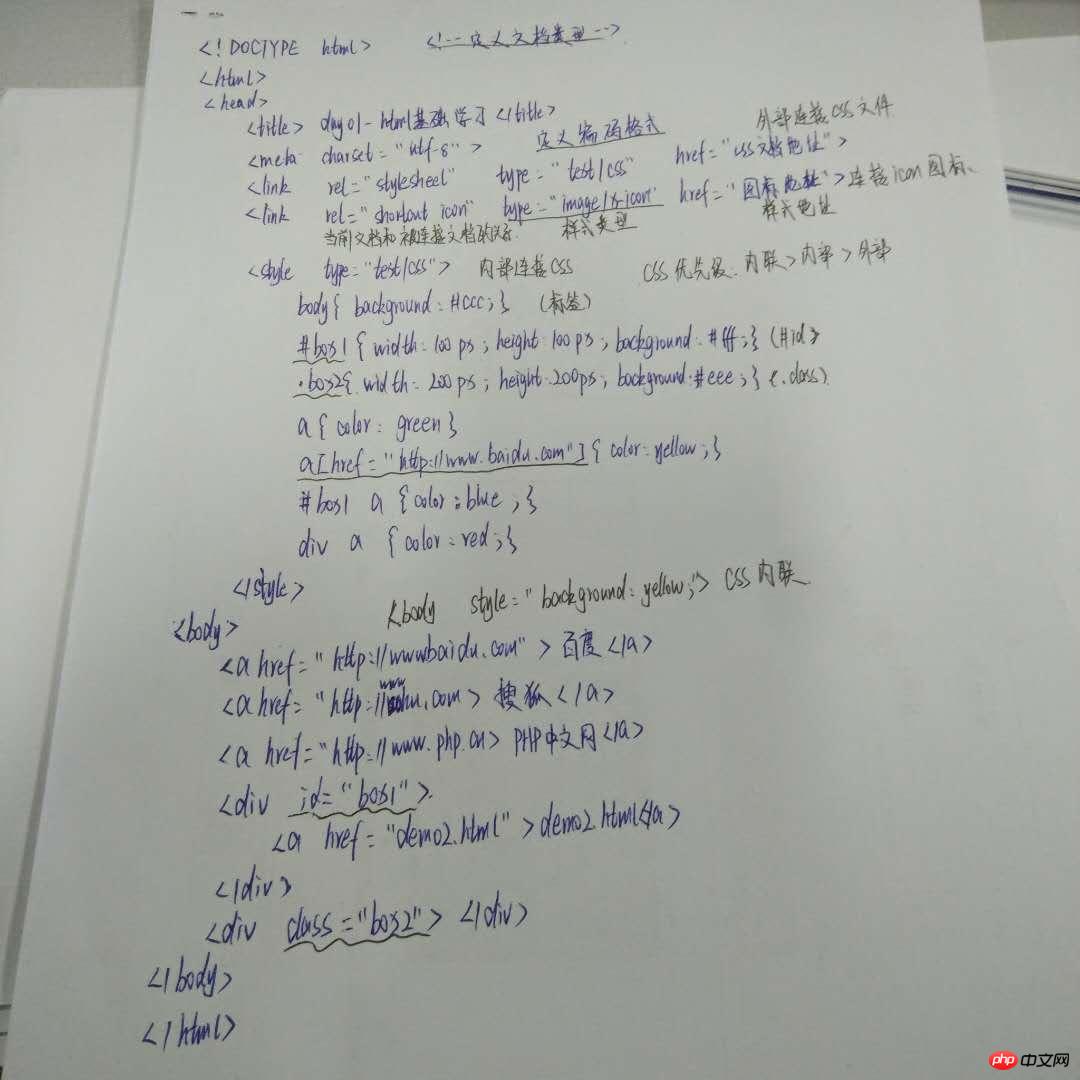 <!DOCTYPE html> <!-- 定义文档类型 -->
<html>
<head>
<title> day01-html基础学习</title>
<meta charset="utf-8"> 定义编码格式 外部连接CSS文件
<link rel="stylesheet" type="test/css" href="css文档地址">
<link rel="shortcut icon" type="image/x-icon" href="图标地址">连接icon图标、
当前文档和被连接文档的关系 样式类型 样式地址
<style type="test/css"> 内部连接CSS CSS优先级:内联>内部>外部
body{ background:#ccc;} (标签)
#box1 { width:100px; height:100px; background:#fff;} (#id)
.box2{ width:200px; height:200px; background:#eee;} (.class)
a { color: green}
a[href="http://www.baidu.com"]{ color:yellow;}
#box1 a {color:blue;}
div a {color:red;}
</style>
<body style="background:yellow;"> CSS内联
<body>
<a href="http://wwwbaidu.com">百度</a>
<a href="http://www.com> 搜狐</a>
<a href="http://www.php.cn> PHP中文网</a>
<div id="box1">
<a href="demo2.html">demo2.html</a>
</div>
<div class="box2"> </div>
</body>
</html>
php 中文网